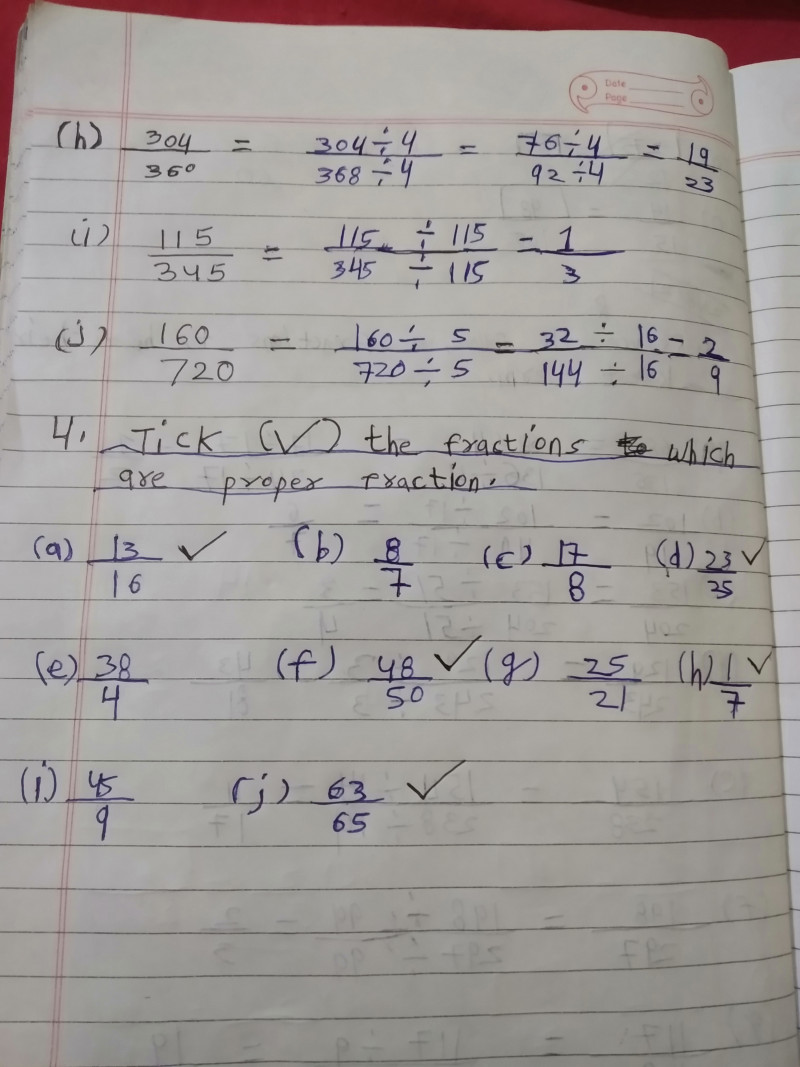 Date
Page
(h) 304/360 = 304÷4/368÷4 = 76÷4/92÷4 = 19/23
(i) 115/345 = 115 ÷ 115/345 ÷ 115 = 1/3
(j) 160/720 = 160 ÷ 5/720 ÷ 5 = 32 ÷ 16/144 ÷ 16 = 2/9
4. Tick (✓) the fractions which
are proper fraction.
(a) 13/16 ✓ (b) 8/7 (c) 17/8 (d) 23/25 ✓
(e) 38/4 (f) 48/50 ✓ (g) 25/21 (h) 1/7 ✓
(i) 45/9 (j) 63/65 ✓